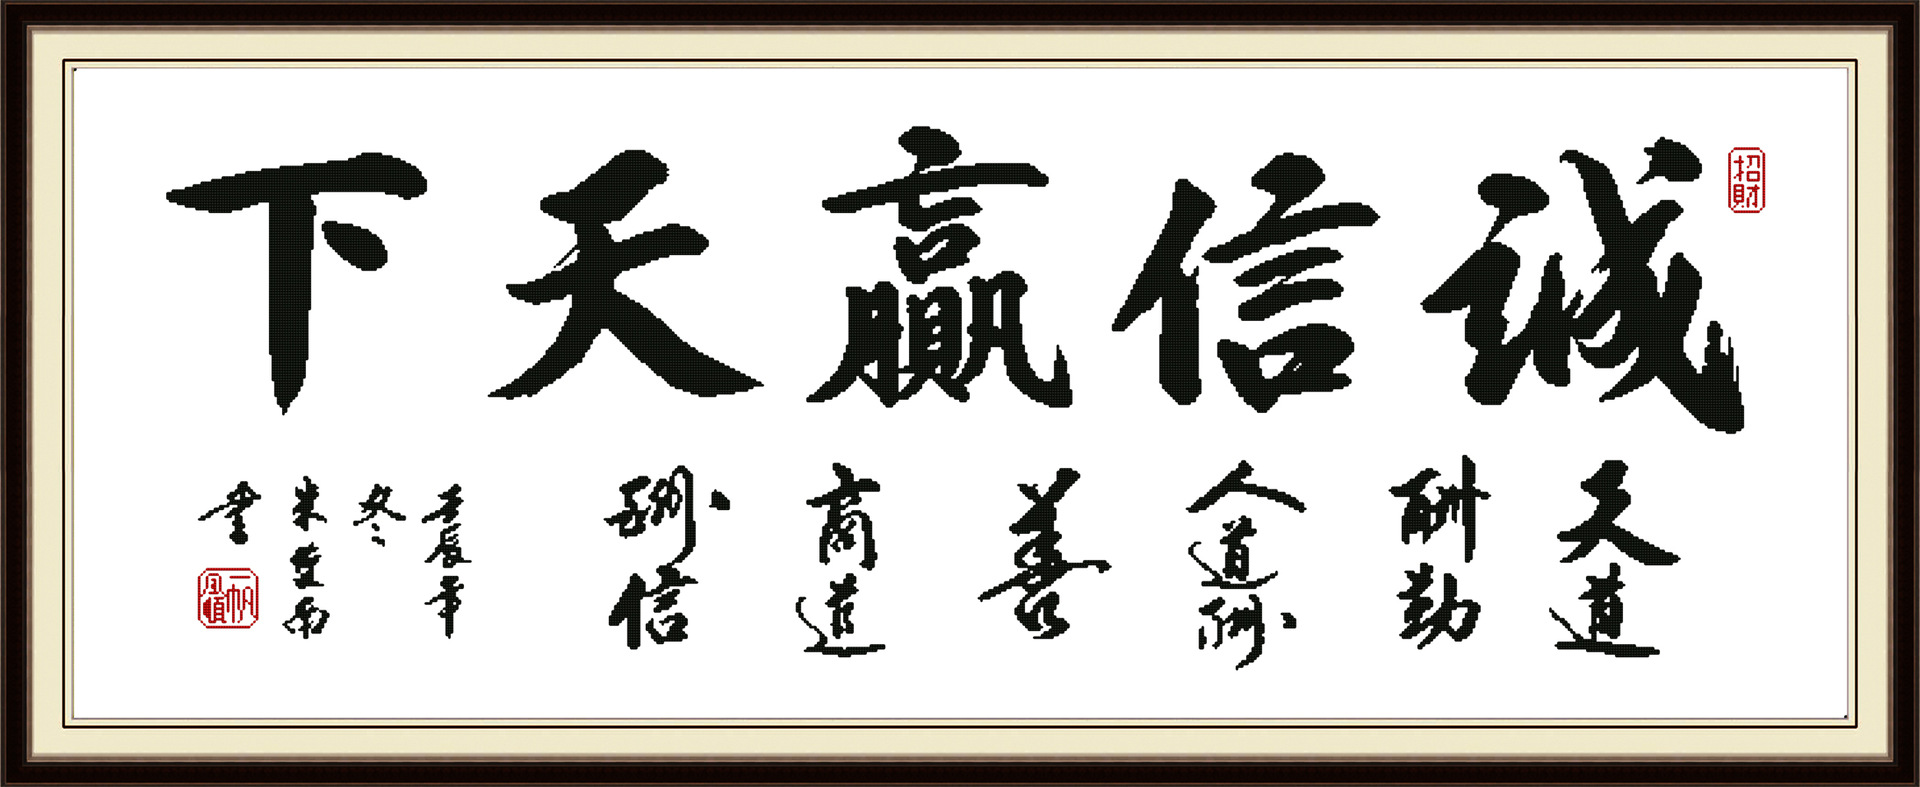 誠信贏天下
招財
天道
酬勤
人道酬
善
商道
酬信
壬辰年
冬
朱
書
一帆風順